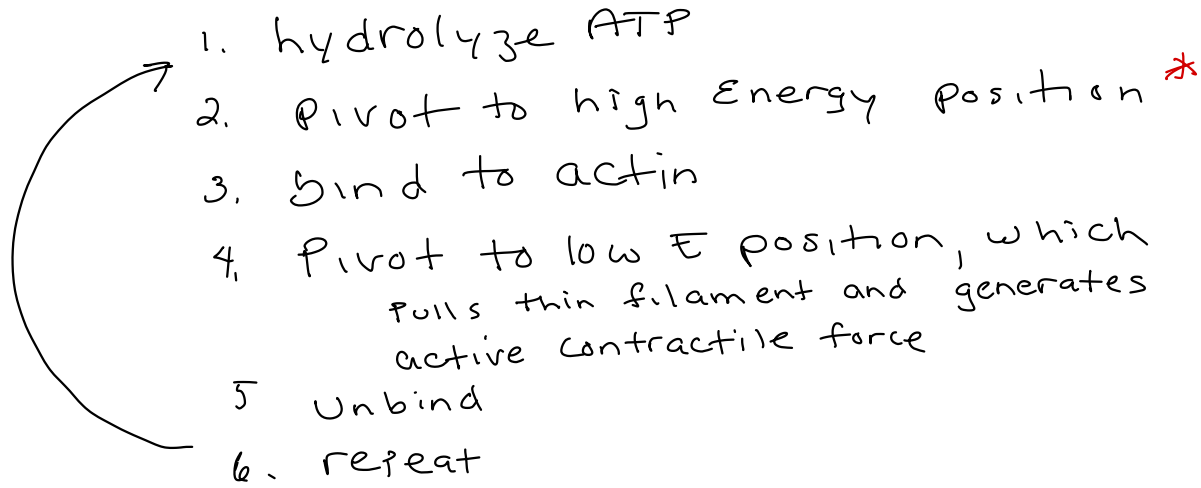 1. hydrolyze ATP
2. Pivot to high Energy position *
3. bind to actin
4. Pivot to low E position, which
pulls thin filament and generates
active contractile force
5 Unbind
6. repeat